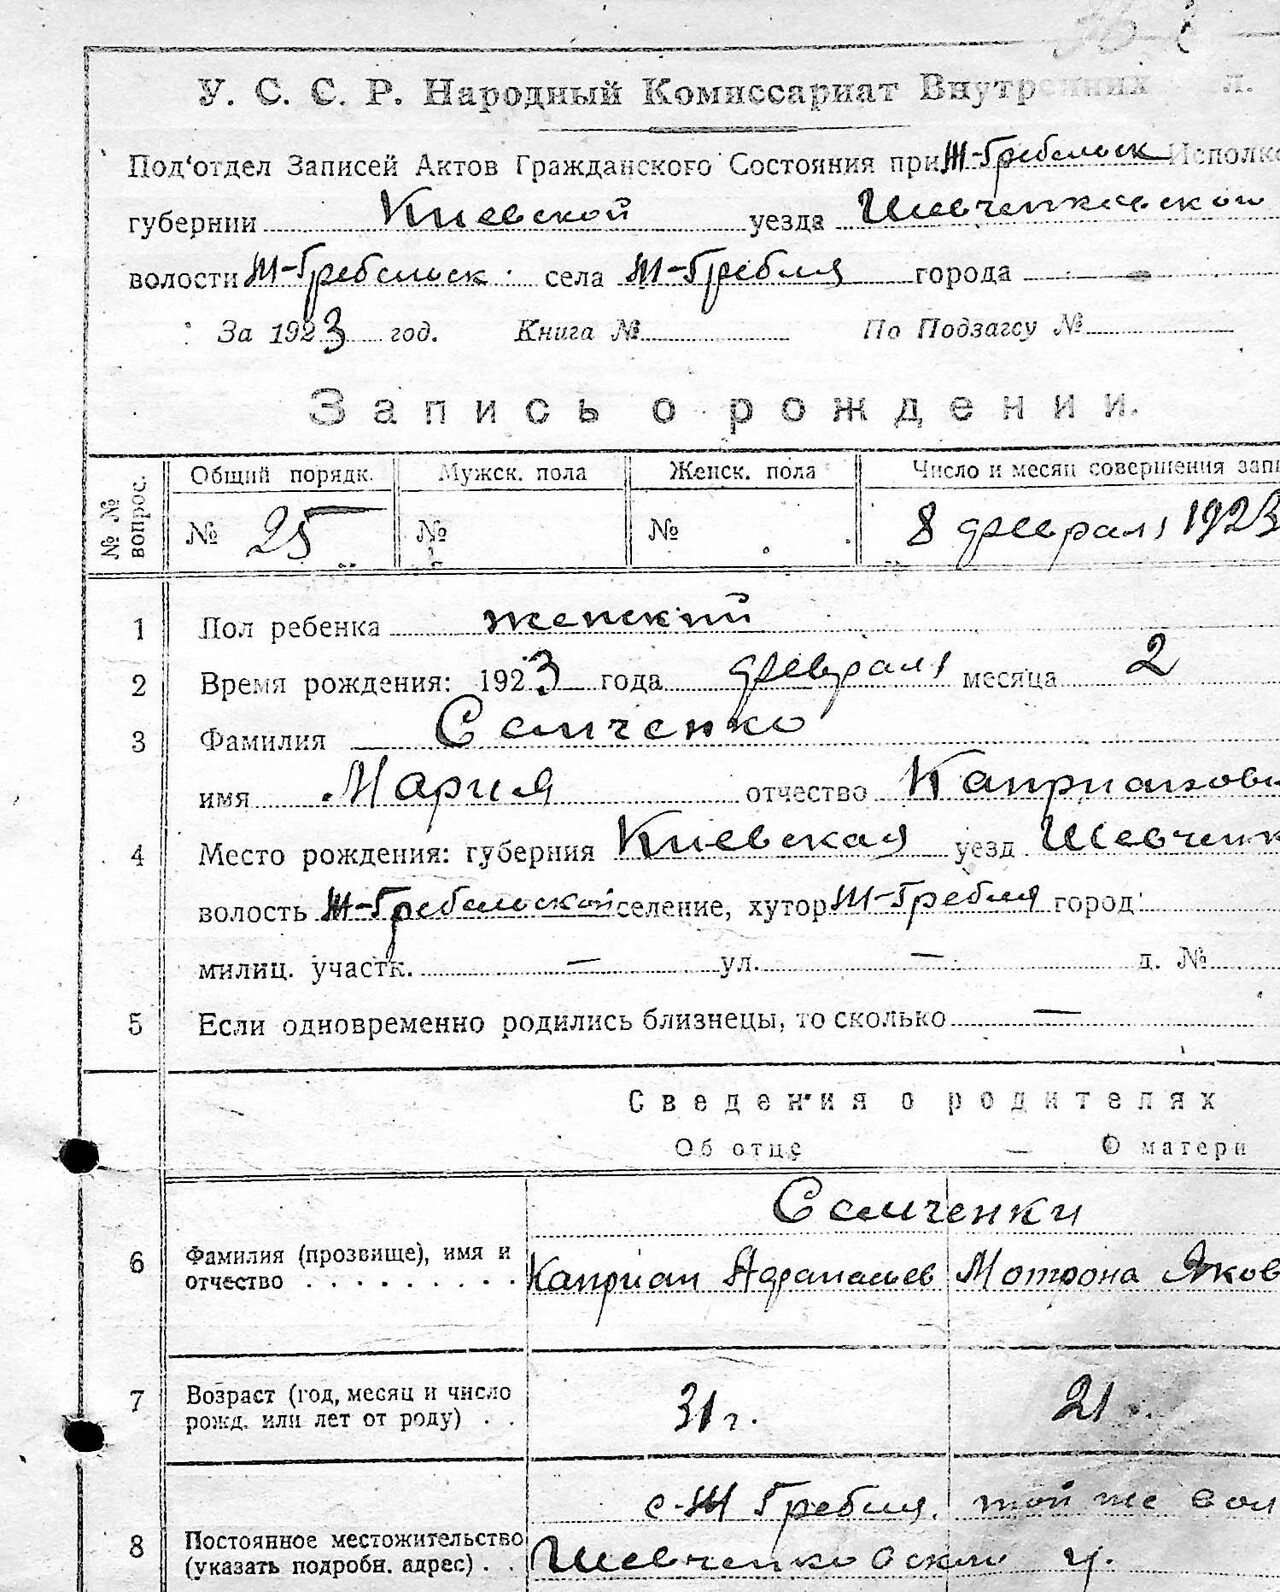 У. С. С. Р. Народный Комиссариат Внутренних л.
Под'отдел Записей Актов Гражданского Состояния при Ж-Гребельск Исполко
губернии Киевской уезда Шевченковской
волости Ж-Гребельск. села Ж-Гребля города —
За 1923 год. Книга № По Подзагсу №
Запись о рождении.
№ № вопрос. Общий порядк. Мужск. пола Женск. пола Число и месяц совершения запи
№ 25 № № 8 февраля 1923
1 Пол ребенка женский
2 Время рождения: 1923 года февраля месяца 2
3 Фамилия Семченко
имя Мария отчество Каприановн
4 Место рождения: губерния Киевская уезд Шевченк
волость Ж-Гребельской селение, хутор Ж-Гребля город
милиц. участк. — ул. — д. №
5 Если одновременно родились близнецы, то сколько —
Сведения о родителях
Об отце — О матери
Семченки
6 Фамилия (прозвище), имя и
отчество . . . . . . . . . Каприан Афанасьев Мотрона Яков
7 Возраст (год, месяц и число
рожд. или лет от роду) . . 31 г. 21
с. Ж Гребля, той же вол
8 Постоянное местожительство
(указать подробн. адрес) . . Шевченковской у.